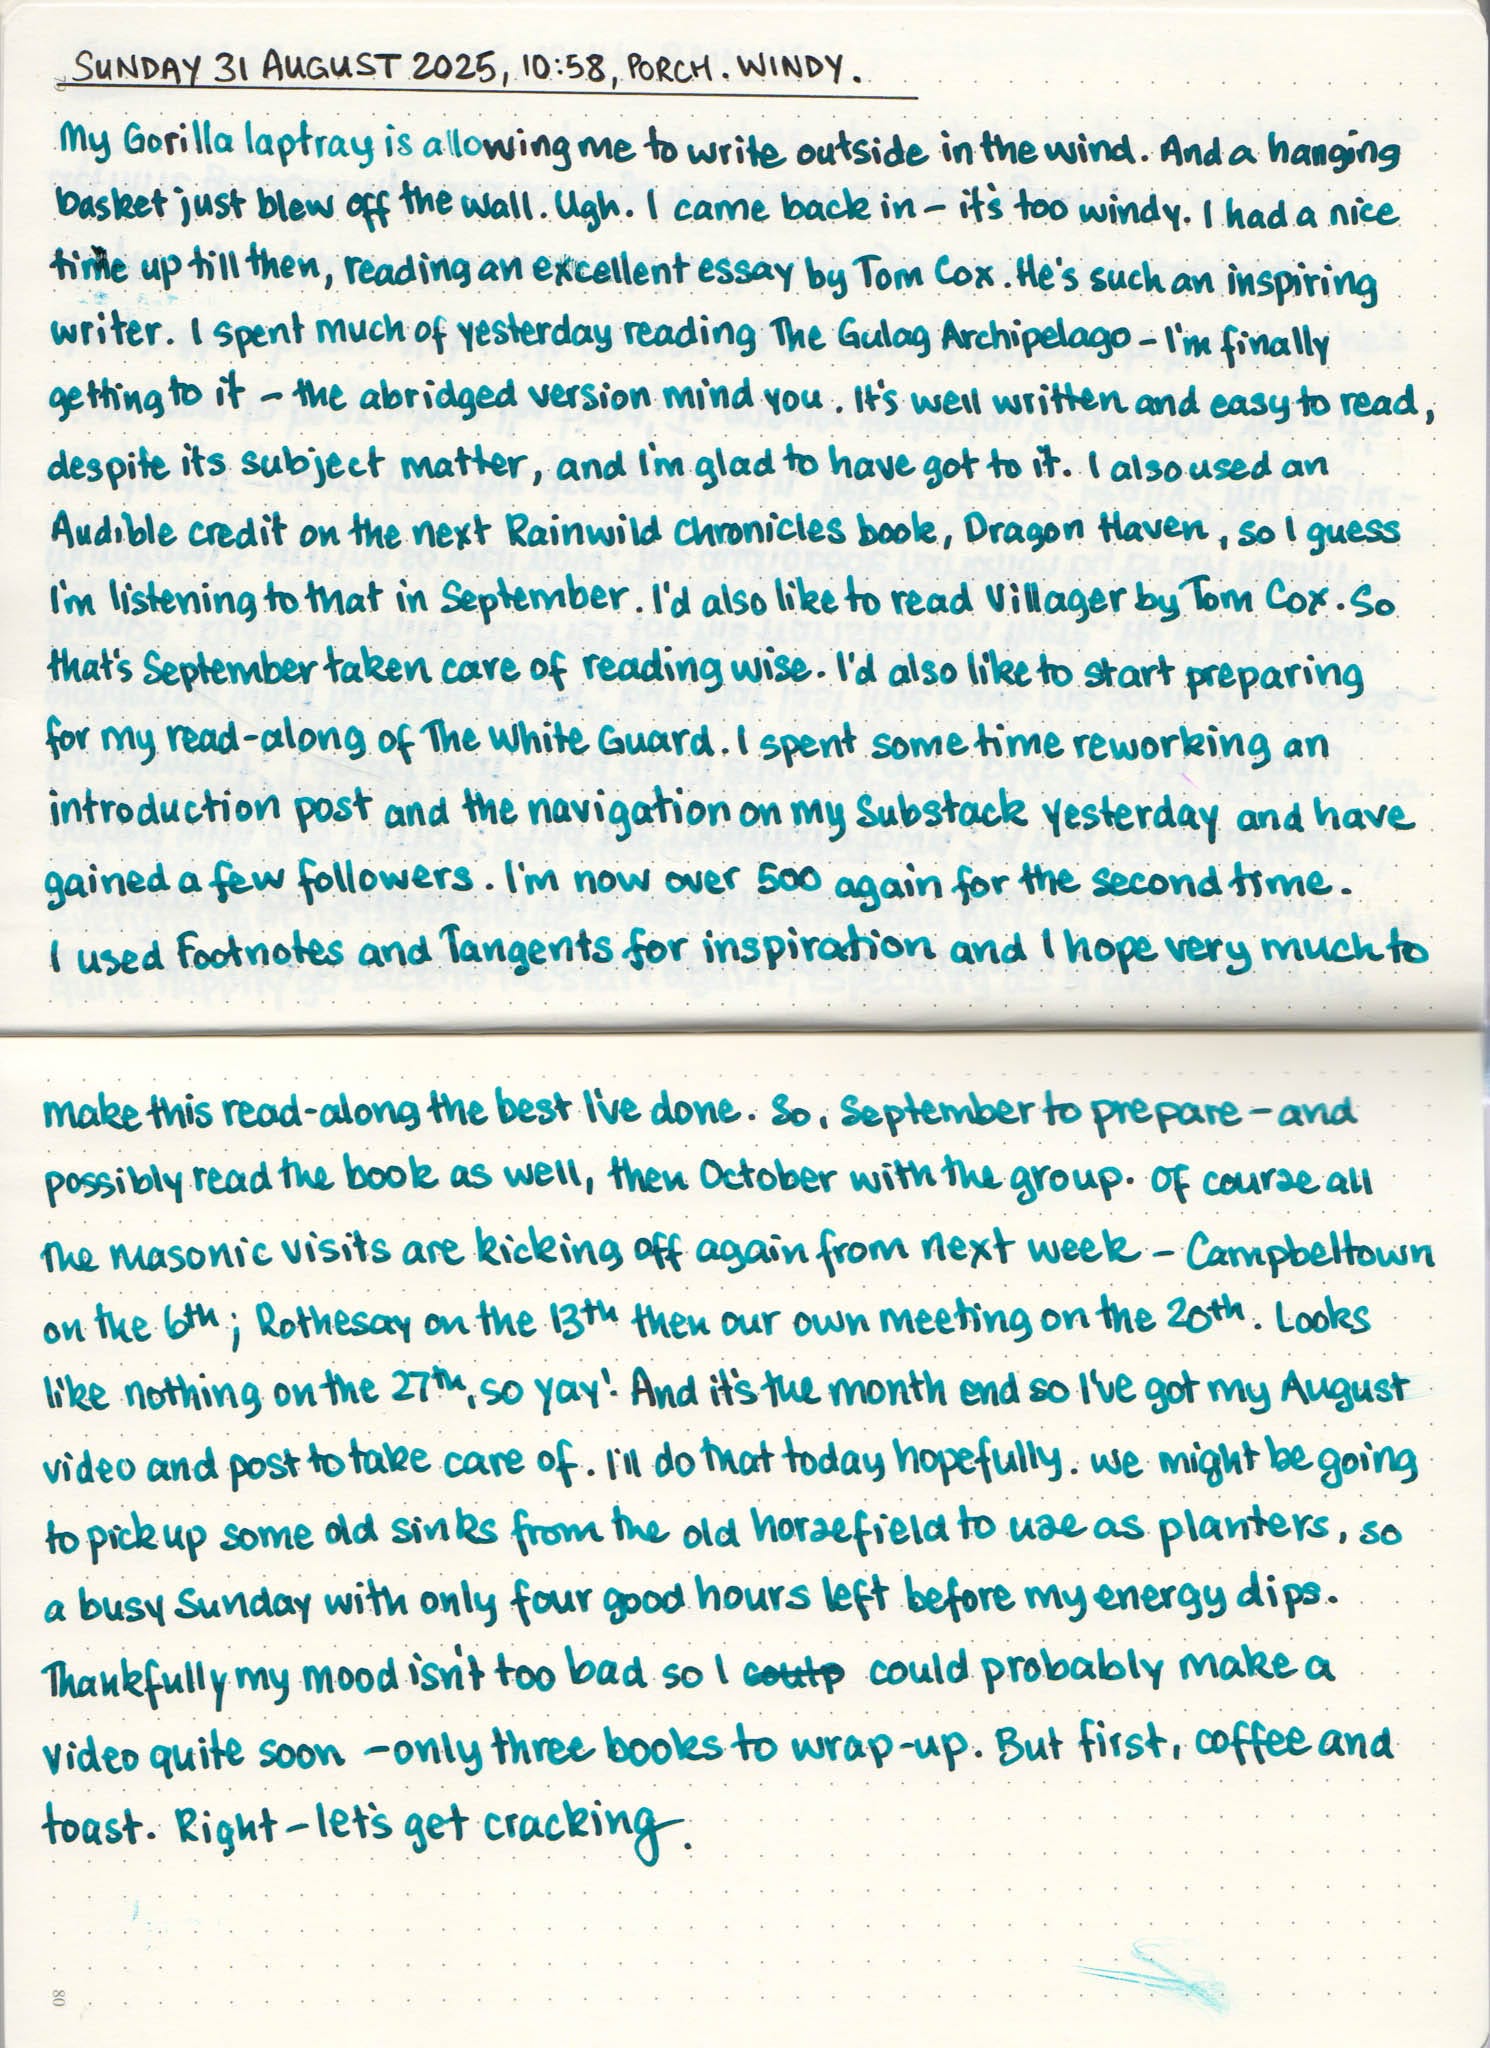 SUNDAY 31 AUGUST 2025, 10:58, PORCH. WINDY.
My Gorilla laptray is allowing me to write outside in the wind. And a hanging
basket just blew off the wall. Ugh. I came back in – it's too windy. I had a nice
time up till then, reading an excellent essay by Tom Cox. He's such an inspiring
writer. I spent much of yesterday reading The Gulag Archipelago – I'm finally
getting to it – the abridged version mind you. It's well written and easy to read,
despite its subject matter, and I'm glad to have got to it. I also used an
Audible credit on the next Rainwild Chronicles book, Dragon Haven, so I guess
I'm listening to that in September. I'd also like to read Villager by Tom Cox. So
that's September taken care of reading wise. I'd also like to start preparing
for my read-along of The White Guard. I spent some time reworking an
introduction post and the navigation on my Substack yesterday and have
gained a few followers. I'm now over 500 again for the second time.
I used Footnotes and Tangents for inspiration and I hope very much to
make this read-along the best I've done. So, September to prepare – and
possibly read the book as well, then October with the group. Of course all
the Masonic visits are kicking off again from next week – Campbeltown
on the 6th; Rothesay on the 13th then our own meeting on the 20th. Looks
like nothing on the 27th, so yay! And it's the month end so I've got my August
video and post to take care of. I'll do that today hopefully. We might be going
to pick up some old sinks from the old horsefield to use as planters, so
a busy Sunday with only four good hours left before my energy dips.
Thankfully my mood isn't too bad so I coulp could probably make a
video quite soon – only three books to wrap-up. But first, coffee and
toast. Right – let's get cracking.
80